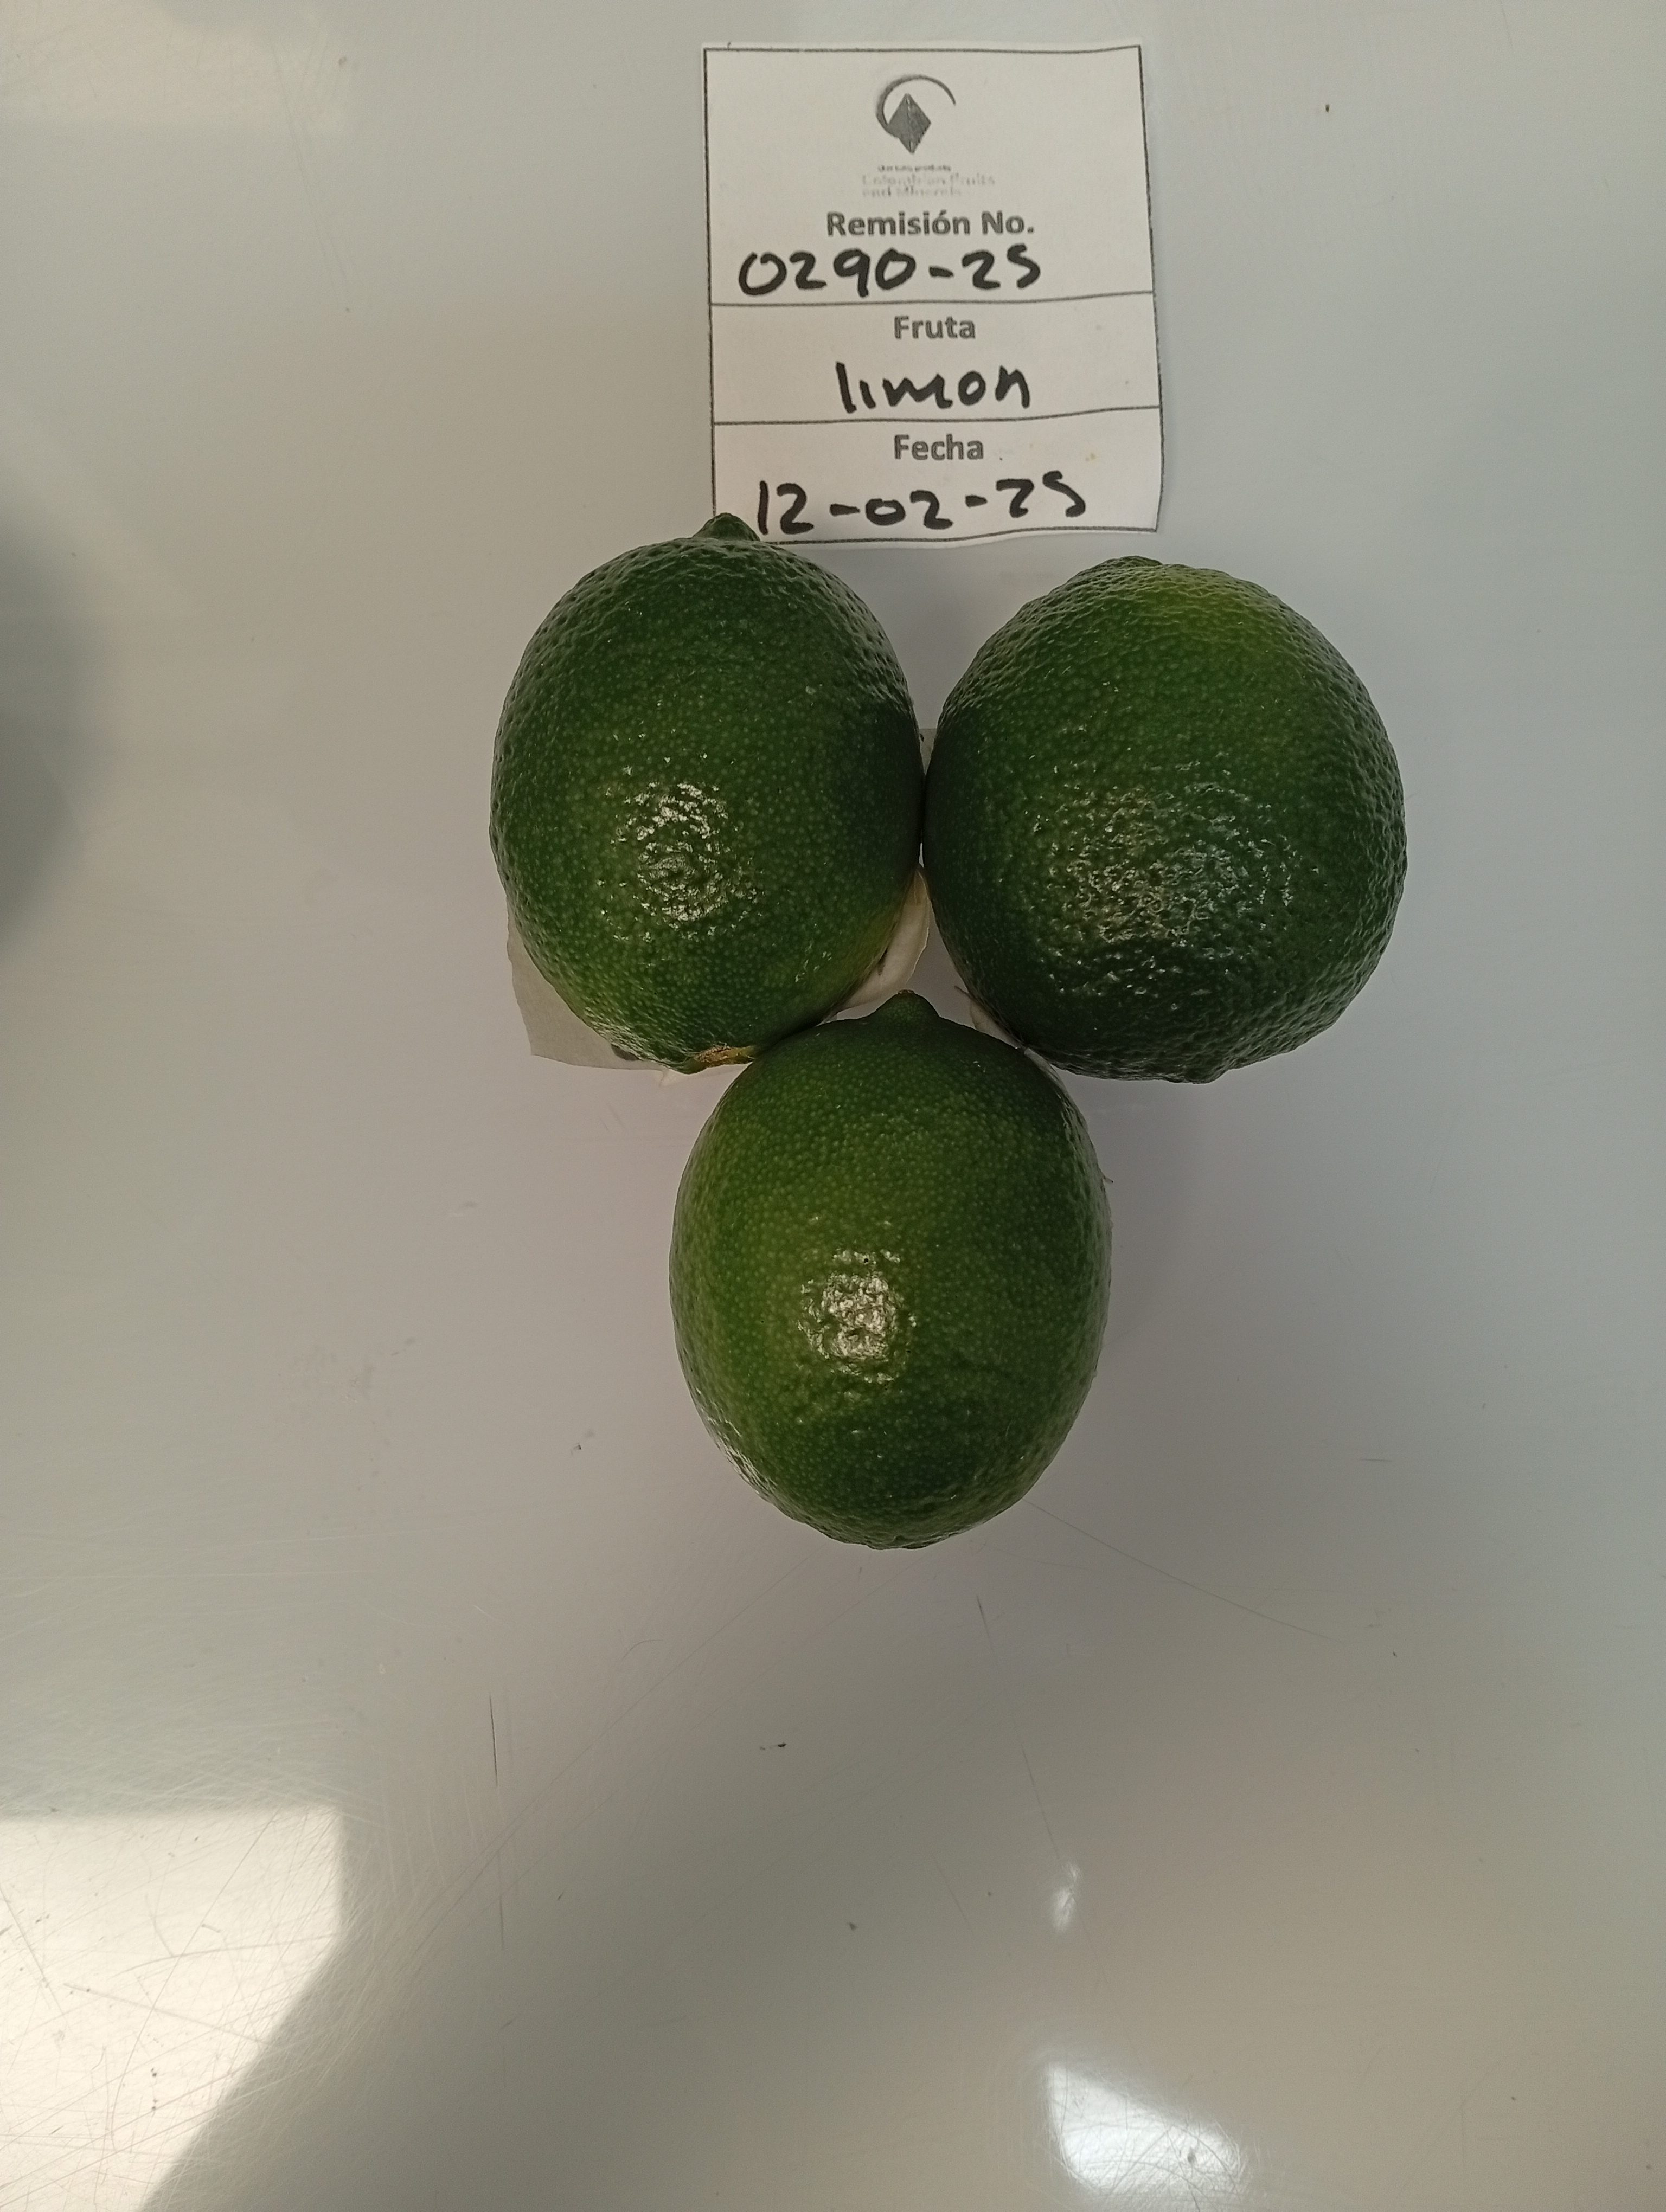 Colombian Fruits
and Minerals
Remisión No.
0290-25
Fruta
limon
Fecha
12-02-25